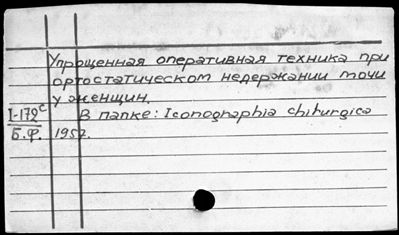 Упрощенная оперативная техника при
ортостатическом недержании мочи
у женщин.
I-179с В папке: Iconographia chirurgica
Б.Ф. 1957.